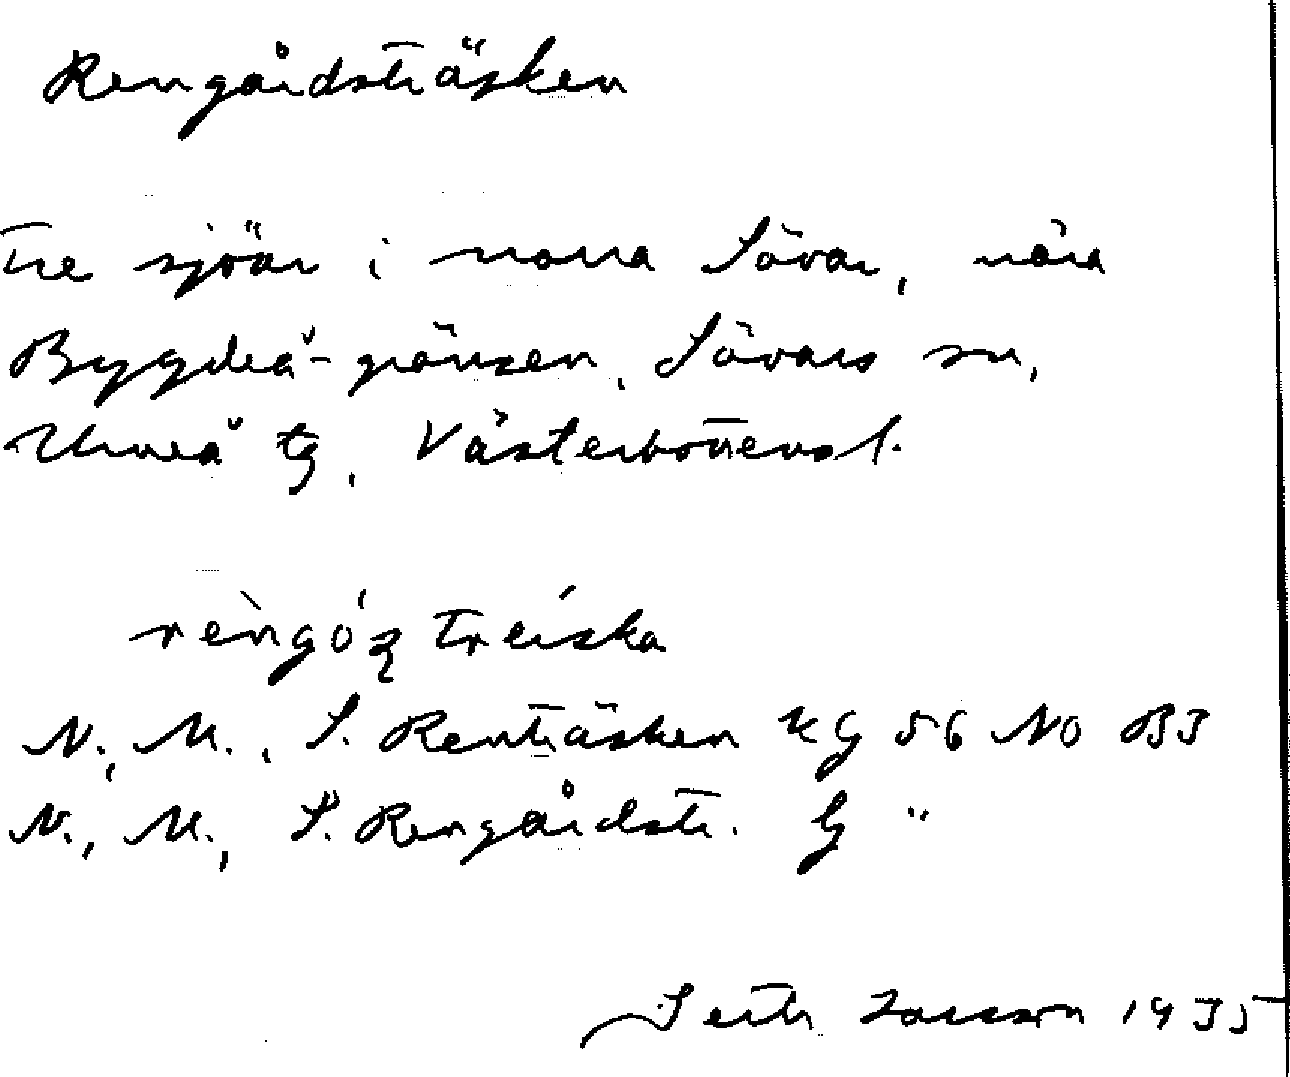 Rengårdsträsken
Tre sjöar i norra Sävar, nära
Bygdeå-gränsen, Sävars sn,
Umeå tg, Västerbottens l.
N., M., S. Renträsken KG 56 NO BJ
N., M., S. Rengårdstr. G "
Seth Larsson 1935